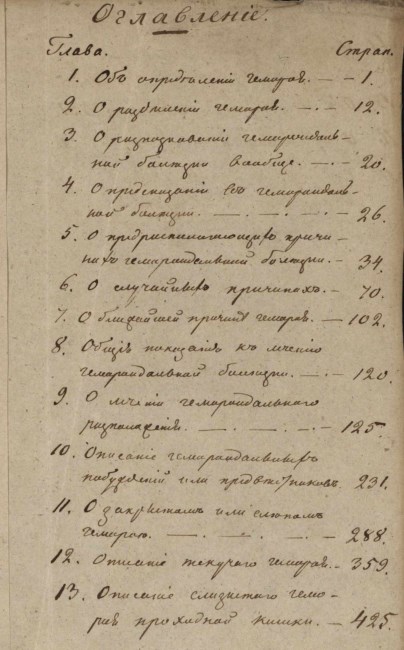 Оглавленіе.
Глава. Стран.
1. Объ опредѣленіи гемороя. — — 1.
2. О раздѣленіи гемороя. — . — 12.
3. О распознаваніи гемороидаль-
ной болѣзни вообще. — . — 20.
4. О предсказаніи въ гемороидаль-
ной болѣзни. — . — . — . — 26.
5. О предрасполагающихъ причи-
нахъ гемороидальной болѣзни. — 34.
6. О случайныхъ причинахъ. — 70.
7. О ближайшей причинѣ гемороя. — 102.
8. Общія показанія къ леченію
гемороидальной болѣзни. — . — 120.
9. О леченіи гемороидальнаго
расположенія. — . — . — 125.
10. Описаніе гемороидальныхъ
побужденій или предвѣстниковъ. 231.
11. О закрытомъ или слѣпомъ
гемороѣ. — . — . — . — 288.
12. Описаніе текучаго гемороя. — 359.
13. Описаніе слизистаго гемо-
роя проходной кишки. — 425.